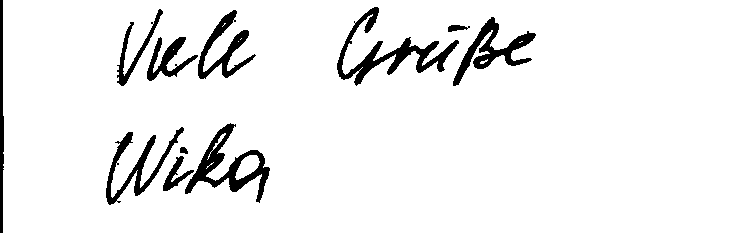 Viele Grüße
Wika